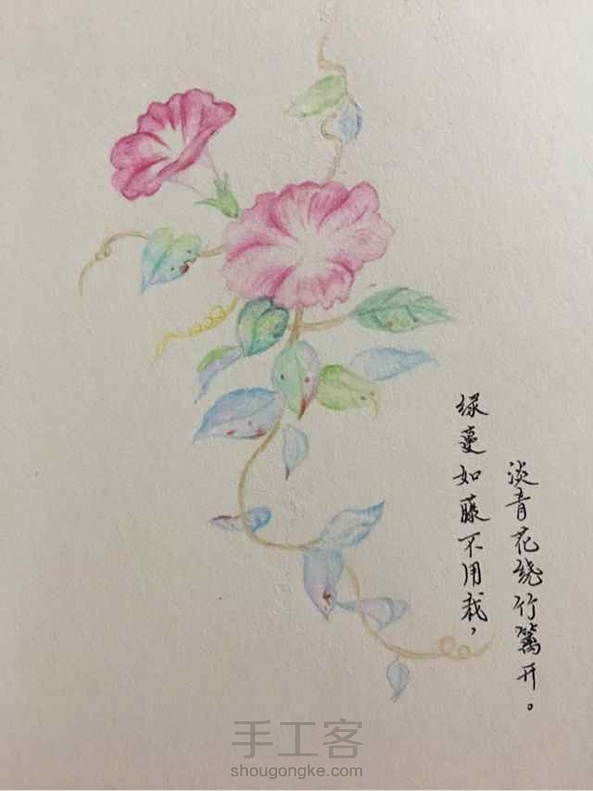 绿蔓如藤不用栽，
淡青花绕竹篱开。
手工客
shougongke.com